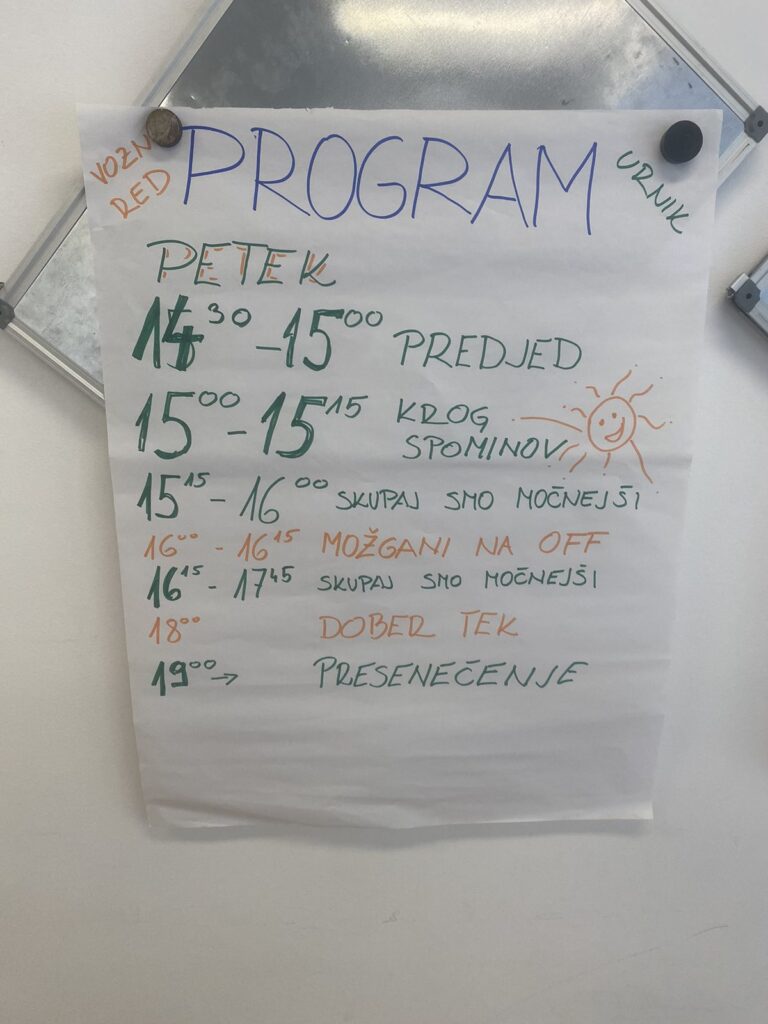 VOZN
RED
PROGRAM
URNIK
PETEK
14³⁰ - 15⁰⁰ PREDJED
15⁰⁰ - 15¹⁵ KROG
SPOMINOV
15¹⁵ - 16⁰⁰ SKUPAJ SMO MOČNEJŠI
16⁰⁰ - 16¹⁵ MOŽGANI NA OFF
16¹⁵ - 17⁴⁵ SKUPAJ SMO MOČNEJŠI
18⁰⁰ DOBER TEK
19⁰⁰ → PRESENEČENJE